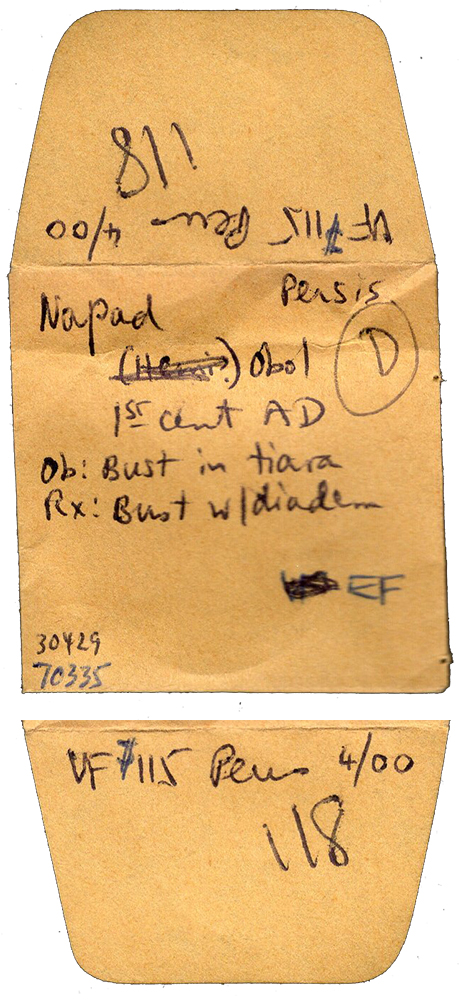 118
VF 115 4/00
Persis
Napad
D
Obol
1st cent AD
Ob: Bust in tiara
Rx: Bust w/diadem
EF
30429
70335
VF 115 4/00
118